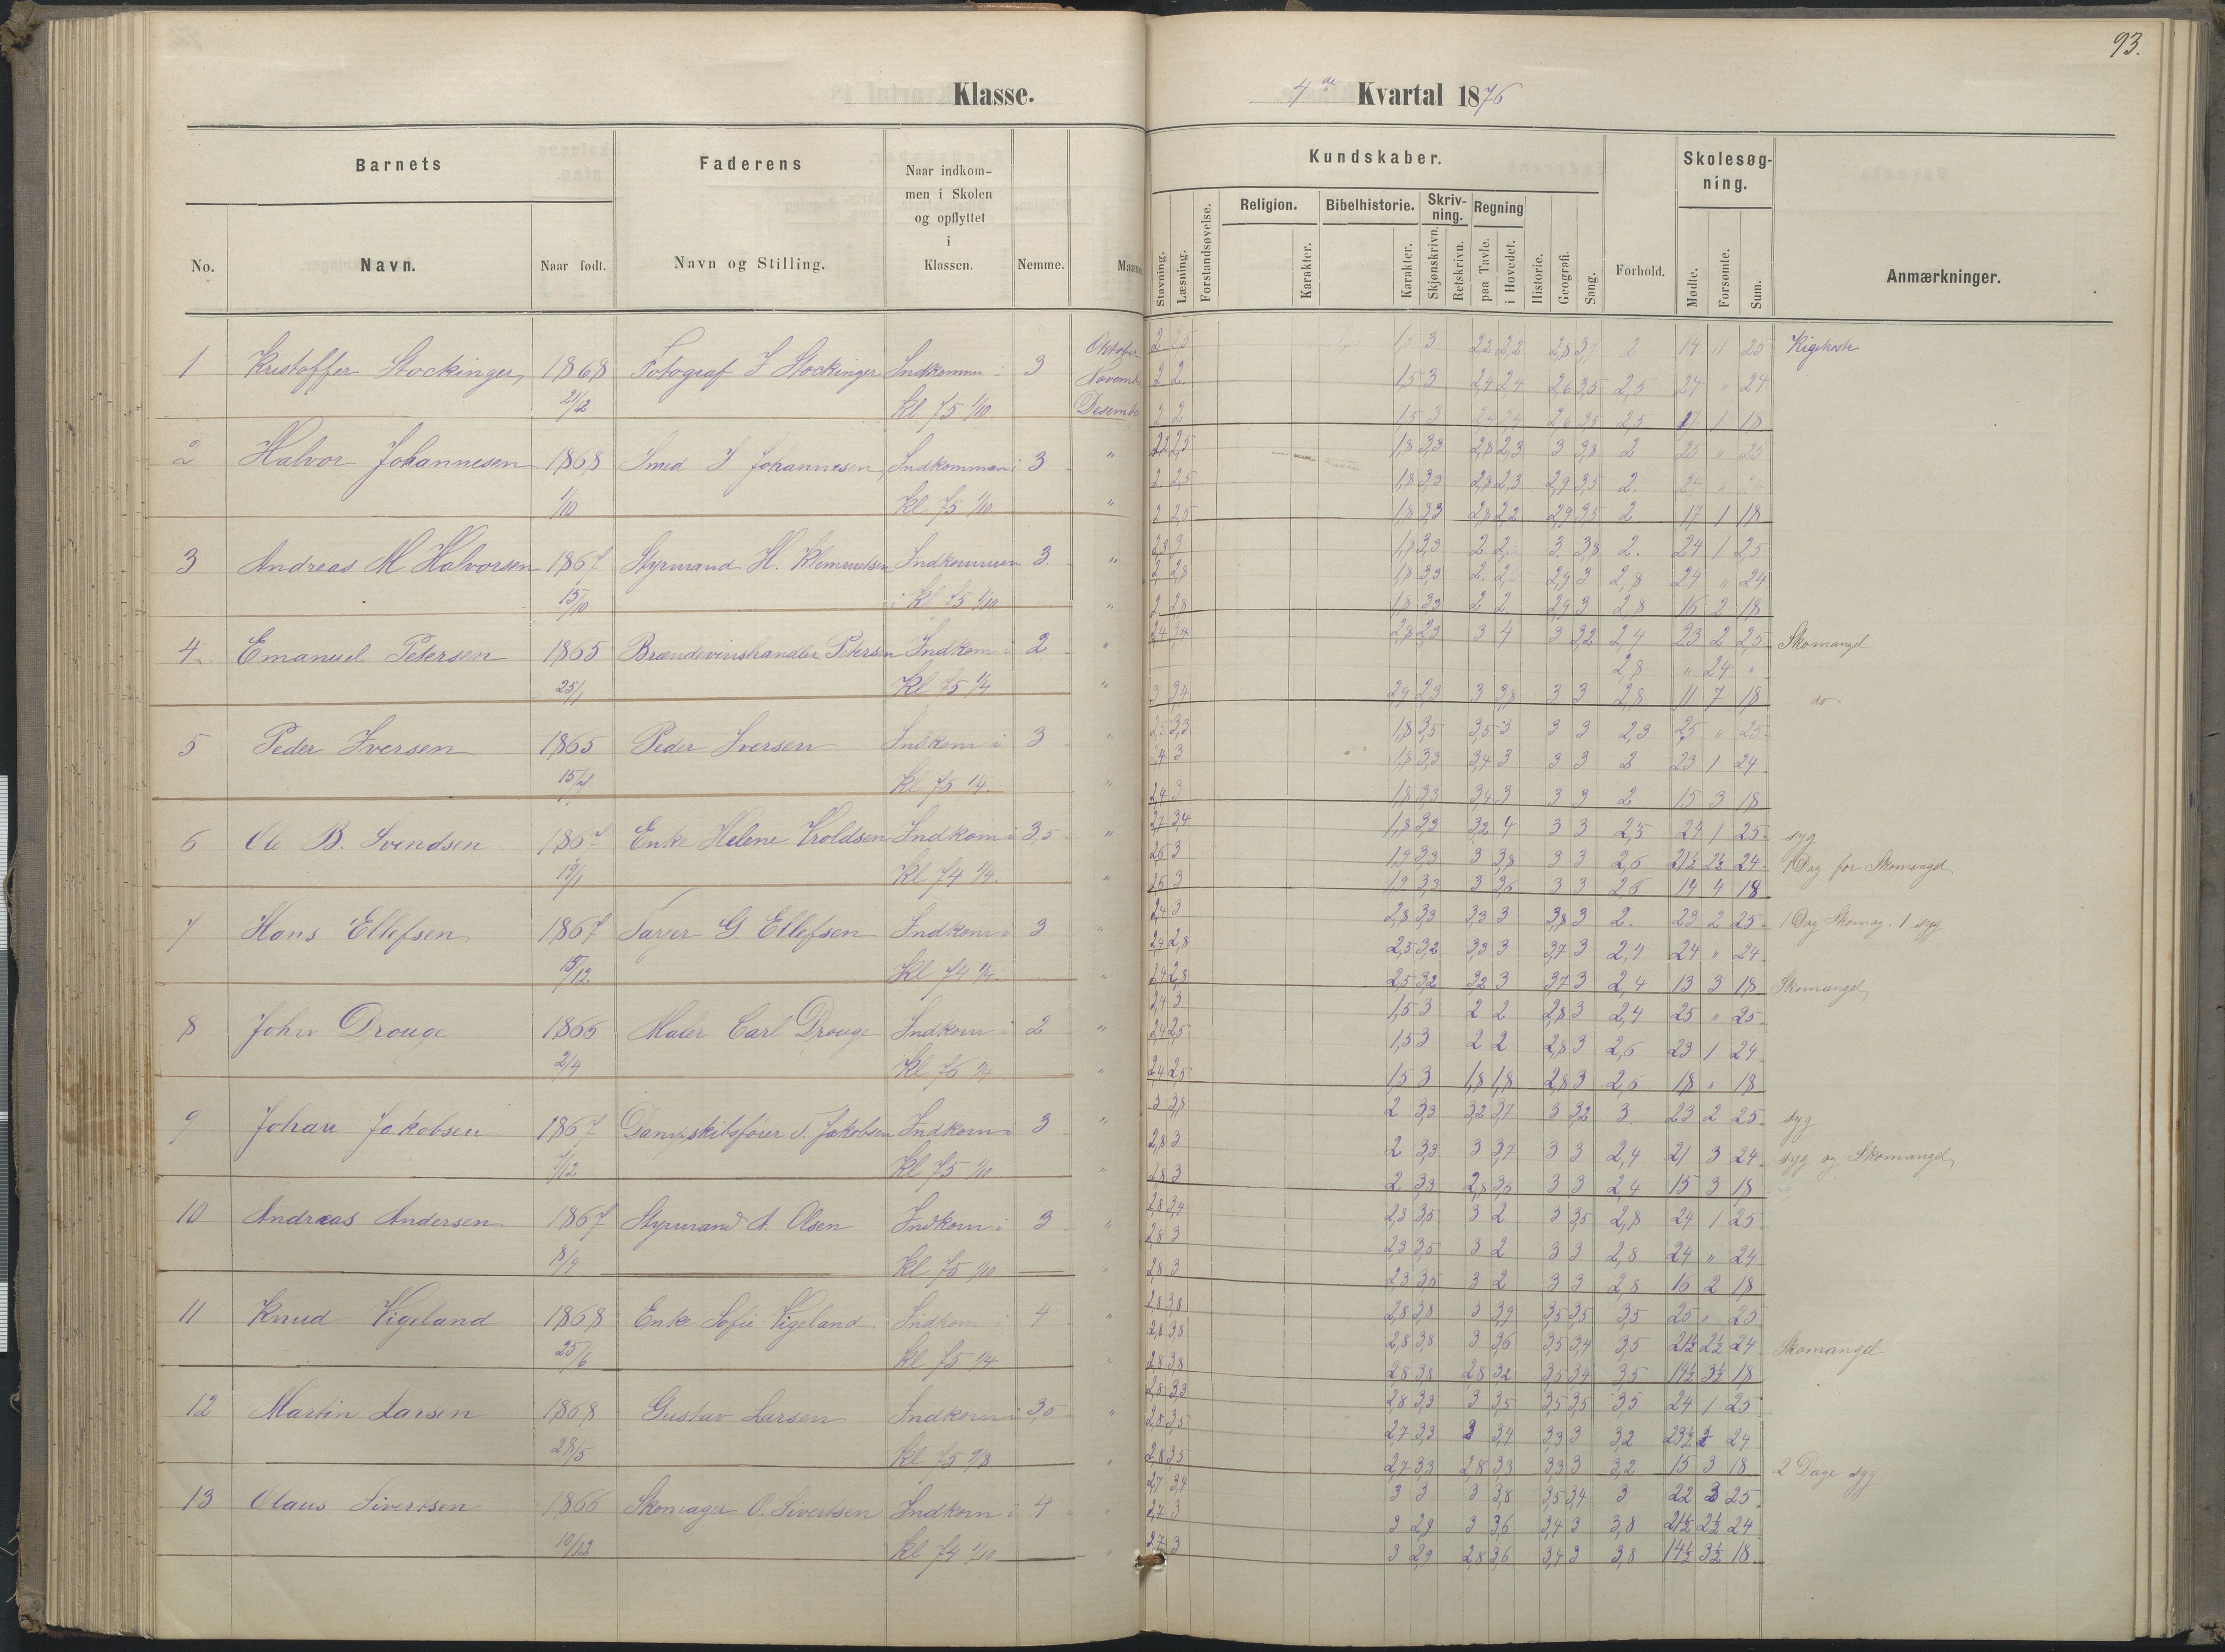 93.
Klasse.
4de Kvartal 1876
Barnets
Faderens
Naar indkommen i Skolen og opflyttet i Klassen.
Nemme.
Kundskaber.
Forhold.
Skolesøgning.
Anmærkninger.
No.
Navn.
Naar født.
Navn og Stilling.
Stavning.
Læsning.
Forstandsøvelse.
Religion.
Karakter.
Bibelhistorie.
Karakter.
Skrivning.
Skjønskrivn.
Retskrivn.
Regning
paa Tavle.
i Hovedet.
Historie.
Geografi.
Sang.
Mødte.
Forsømte.
Sum.
1 Kristoffer Stockinger, 1868 Fotograf J Stockinger Indkommen i 3 Oktober 2 2,5 1,5 3 2,2 2,2 2,8 3,7 2 14 11 25 Kighoste
21/2 Kl 75 1/10 2 2 1,5 3 2,4 2,4 2,6 3,5 2,5 24 " 24
2 2 1,5 3 2,4 2,4 2,6 3,5 2,5 17 1 18
2 Halvor Johannesen 1868 Smed J Johannesen, Indkommen i 3 " 2,2 2,5 1,8 3,3 2,8 2,3 3 3,8 2 25 " 25
1/10 Kl 75 1/10 " 2 2,5 1,8 3,3 2,8 2,3 2,9 3,5 2. 24 " 24
2 2,5 1,8 3,3 2,8 2,2 2,9 3,5 2 17 1 18
3 Andreas M Halvorsen 1867 Styrmand H. Klemmetsen Indkommen 3. " 2,3 3 1,8 3,3 2 3. 3,8 2. 24 1 25
15/10 i Kl 75 1/10 " 2 2,8 1,8 3,3 2. 2,9 3 2,8 24 " 24
2 2,8 1,8 3,3 2 2 2,9 3 2,8 16 2 18
4. Emanuel Petersen 1865 Brændevinshandler Petersen Indkom i 2 " 2,4 3,4 2,8 2,3 3 4 3 3,2 2,4 23 2 25 Skomangel
25/1 Kl 75 1/4 " 2,8 " 24 "
3 3,4 2,9 2,3 3 3,8 3 3 2,8 11 7 18 do
5 Peder Iversen 1865 Peder Iversen Indkom i 3 " 2,5 3,3 1,8 3,5 3,5 3 3 3 2,3 25 " 25
Kl 75 1/4. " 3 1,8 3,3 3,4 3 3 3 2 23 1 24
2,4 3 1,8 3,3 3,4 3 3 3 2 15 3 18
6 Ole B. Svendsen Enke Helene Troldsen Indkom i 3,5 " 2,7 3,4 1,8 3,3 3,2 4 3 3 2,5 24 1 25 syg
Kl 74 1/4. " 2,6 3 1,9 3,3 3 3,8 3 3 2,6 21½ 2½ 24 1 Dag for Skomangel
2,6 3 1,9 3,3 3 3,6 3 3 2,6 14 4 18
7 Hans Ellefsen 1867 Farver G Ellefsen Indkom i 3 " 2,4 3 2,8 3,3 3,3 3 3,8 3 2. 23 2 25 1 Dag Skomag. 1 syg
15/12 Kl 74 1/4. " 2,4 2,8 2,5 3,2 3,3 3 3,7 3 2,4 24 " 24
2,4 2,8 2,5 3,2 3,2 3 3,7 3 2,4 13 3 18 Skomangel
8 John Drouge Maler Carl Drouge Indkom i 2 " 2,4 3 1,5 3 2 2 2,8 3 2,4 25 " 25
2/4 " 2,4 2,5 1,5 3 2 2 2,8 3 2,6 23 1 24
2,4 2,5 1,5 3 1,8 1,8 2,8 3 2,6 18 " 18
9 Johan Jakobsen 1867 Dampskibsfører J. Jakobsen Indkom i 3 " 3 3,8 2 3,3 3,2 3,7 3 3,2 3 23 2 25 syg
Kl 75 1/10 " 2,8 3 2 3,3 3 3,7 3 3 2,4 21 3 24 syg og Skomangel
2,8 3 2 3,3 2,8 3,5 3 3 2,4 15 3 18
10 Andreas Andersen 1867 Styrmand A. Olsen Indkom i 3 " 2,8 3,4 2,3 3,5 3 2 3 3,5 2,8 24 1 25
8/9 Kl 75 1/10 " 2,8 3 2,3 3,5 3 2 3 3 2,8 24 " 24
2,8 3 2,3 3,5 3 2 3 3 2,8 16 2 18
11 Knud Vigeland 1868 Enke Sofie Vigeland Indkom i 4 " 2,8 3,8 2,8 3,8 3 3,9 3,5 3,5 3,5 25 " 25
25/6 Kl 75 1/4 " 2,8 3,8 2,8 3,8 3 3,6 3,5 3,4 3,5 21½ 2½ 24 Skomangel
2,8 3,8 2,8 3,8 2,8 3,2 3,5 3,4 3,5 14½ 3½ 18
12 Martin Larsen 1868 Gustav Larsen Indkom i 3,5 " 2,8 3,3 2,8 3,3 3 3,5 3,5 3,5 3,5 24 1 25
28/5 " 2,8 3,5 2,7 3,3 3 3,4 3,3 3 3,2 23½ ½ 24
2,8 3,5 2,7 3,3 2,8 3,3 3,3 3 3,2 15 3 18 2 Dage syg
13 Olaus Sivertsen 1866 Skomager O. Sivertsen Indkom i 4 " 2,7 3,4 3 3 3 3,8 3,5 3,4 3 22 3 25
10/12 Kl 74 1/10 " 2,7 3 3 2,9 3 3,6 3,4 3 3,8 21½ 2½ 24
2,7 3 3 2,9 2,8 3,6 3,4 3 3,8 14½ 3½ 18